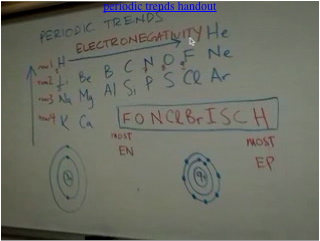 periodic trends handout
PERIODIC TRENDS
ELECTRONEGATIVITY
row1 H He
row2 Li Be B C N O F Ne
row3 Na Mg Al Si P S Cl Ar
row4 K Ca
FONClBrISCH
MOST EN
MOST EP